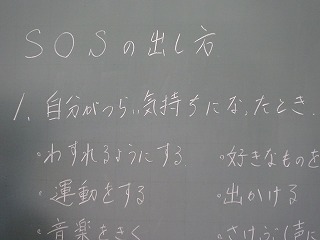 SOSの出し方
1. 自分がつらい気持ちになったとき.
・わすれるようにする ・好きなものを
・運動をする ・出かける
・音楽をきく ・さけぶ